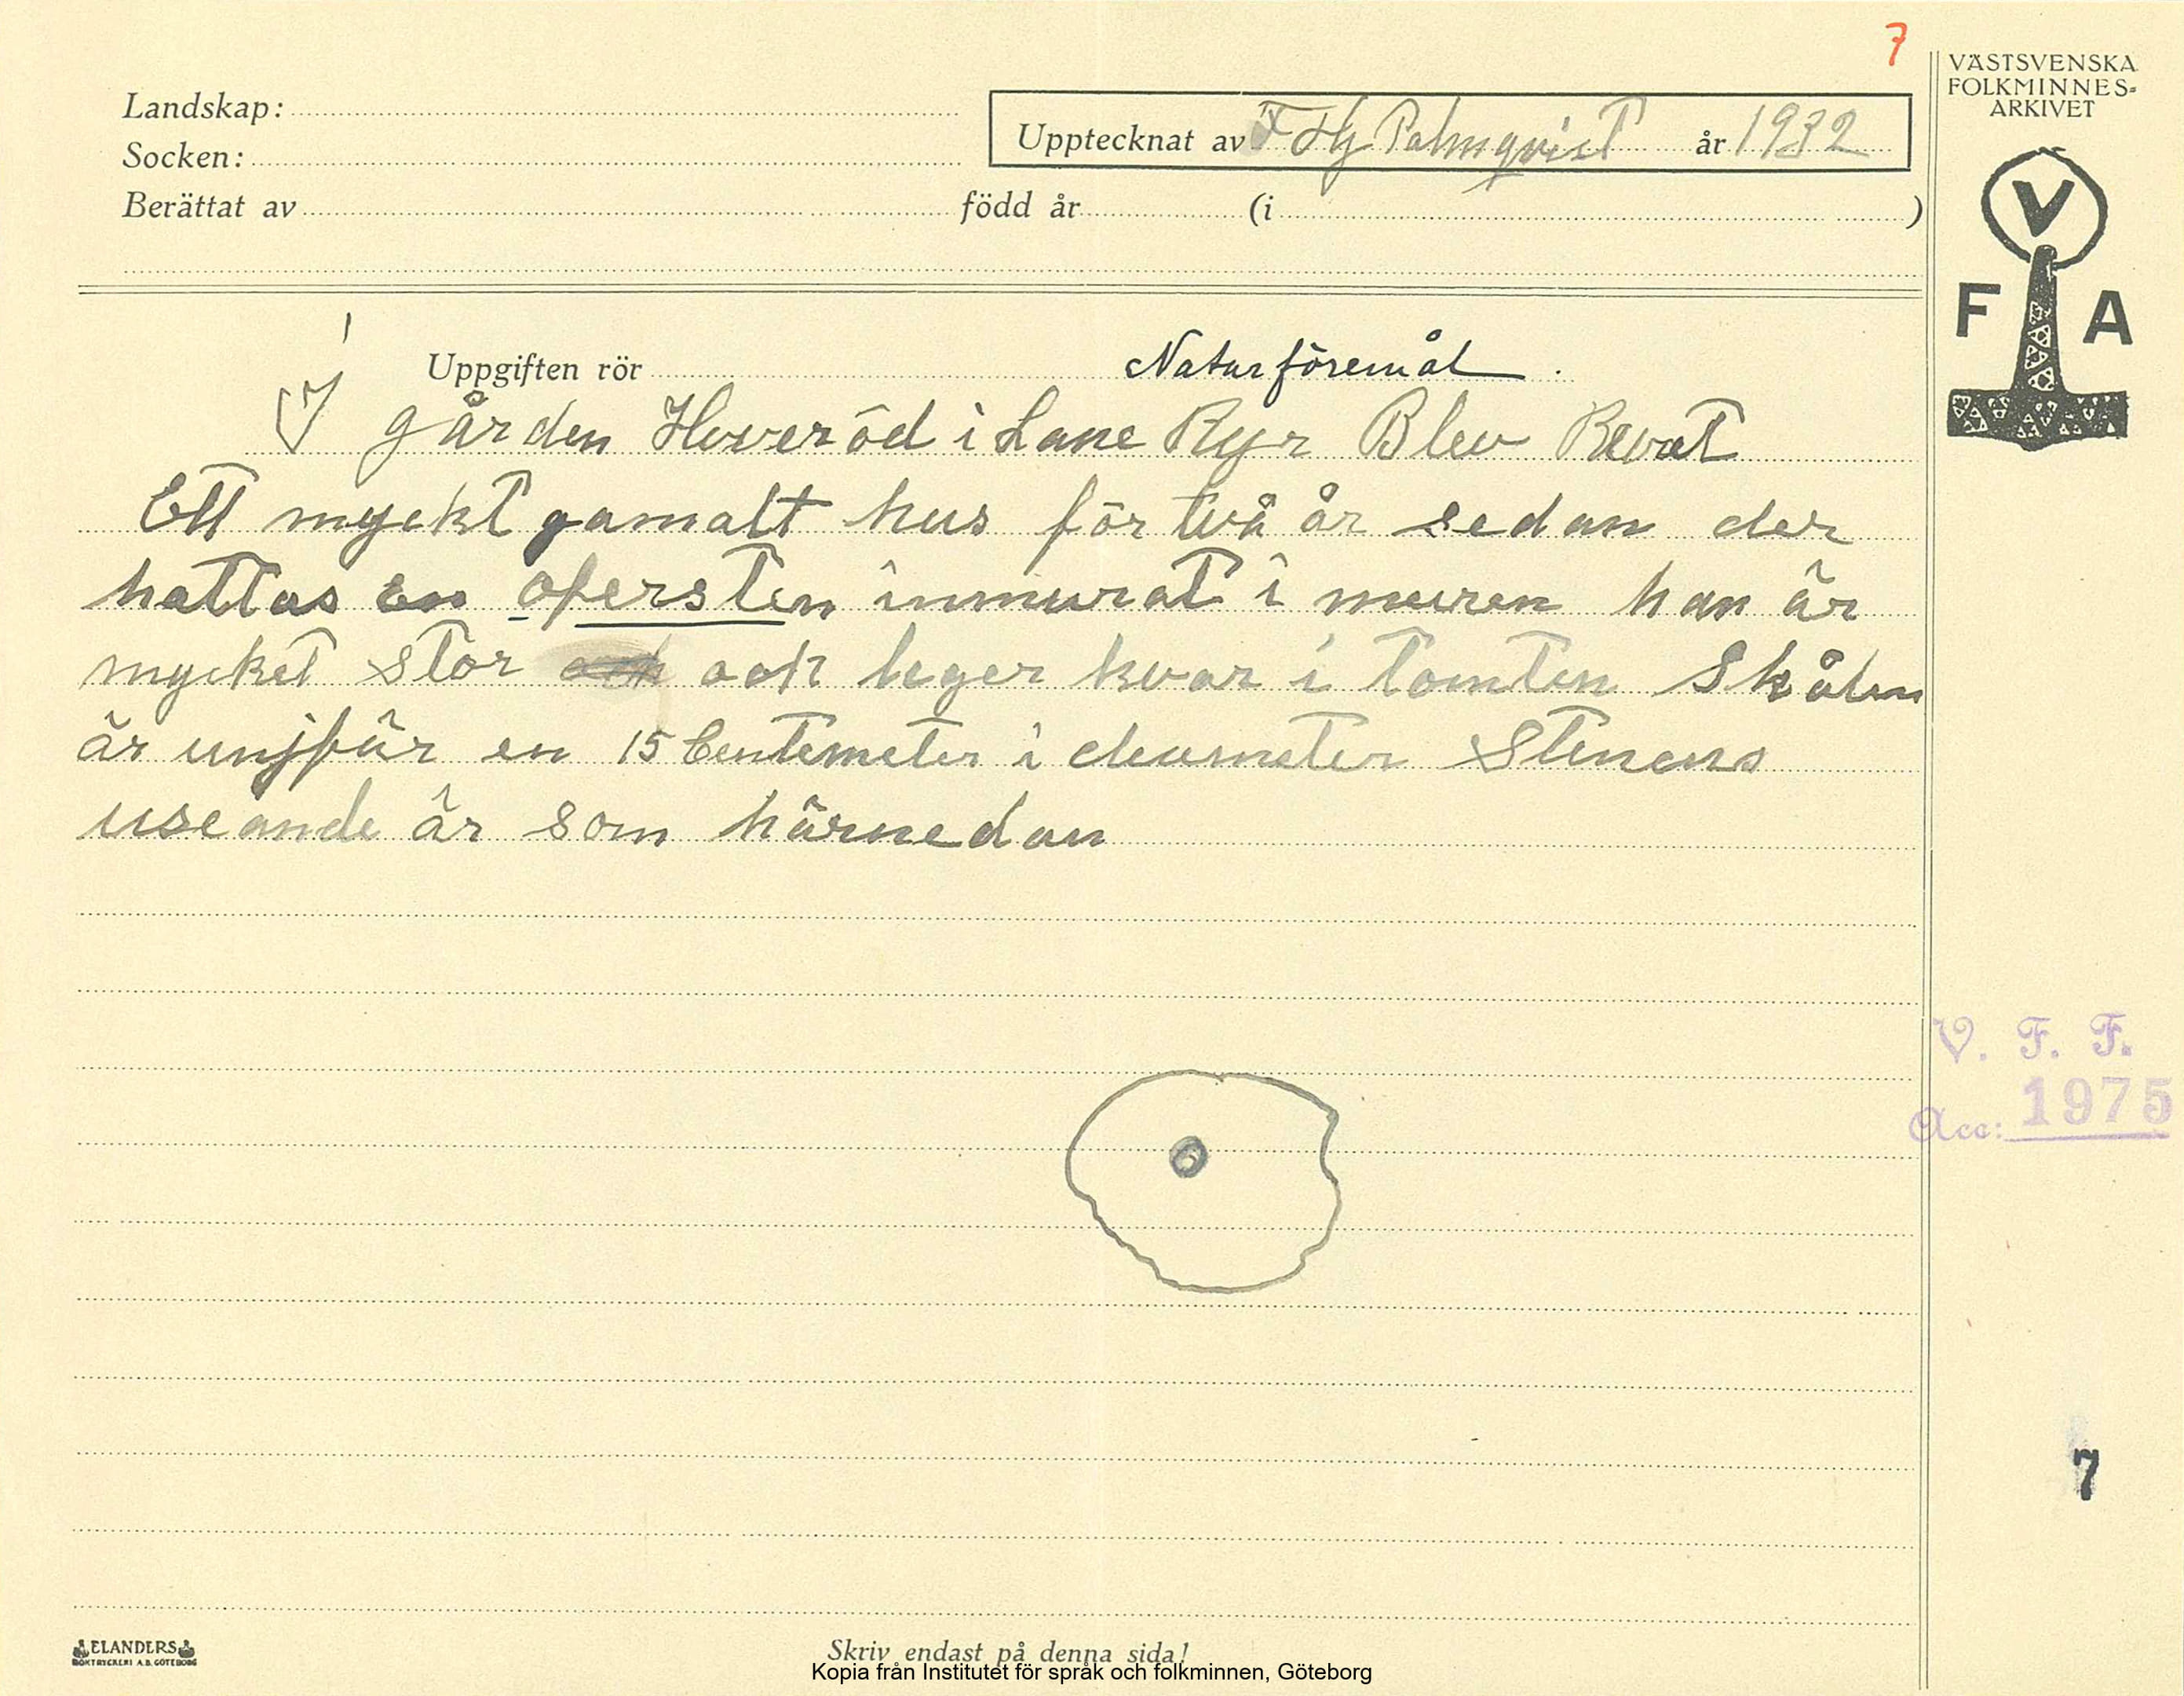 7
VÄSTSVENSKA
FOLKMINNES-
ARKIVET
Landskap:
Socken:
Upptecknat av F Hj Palmqvist år 1932
Berättat av född år (i )
V
F A
Uppgiften rör Naturföremål.
I gården Hoveröd i Lane Ryr Blev Revet
Ett myckt gamalt hus för två år sedan der
hattas en ofersten inmurat i muren han är
mycket stor och leger kvar i tomten Skålen
är unjfär en 15 Centemeter i deameter Stenens
useande är som härnedan
V. F. F.
Acc: 1975
7
ELANDERS
BOKTRYCKERI A.B. GÖTEBORG
Skriv endast på denna sida!
Kopia från Institutet för språk och folkminnen, Göteborg